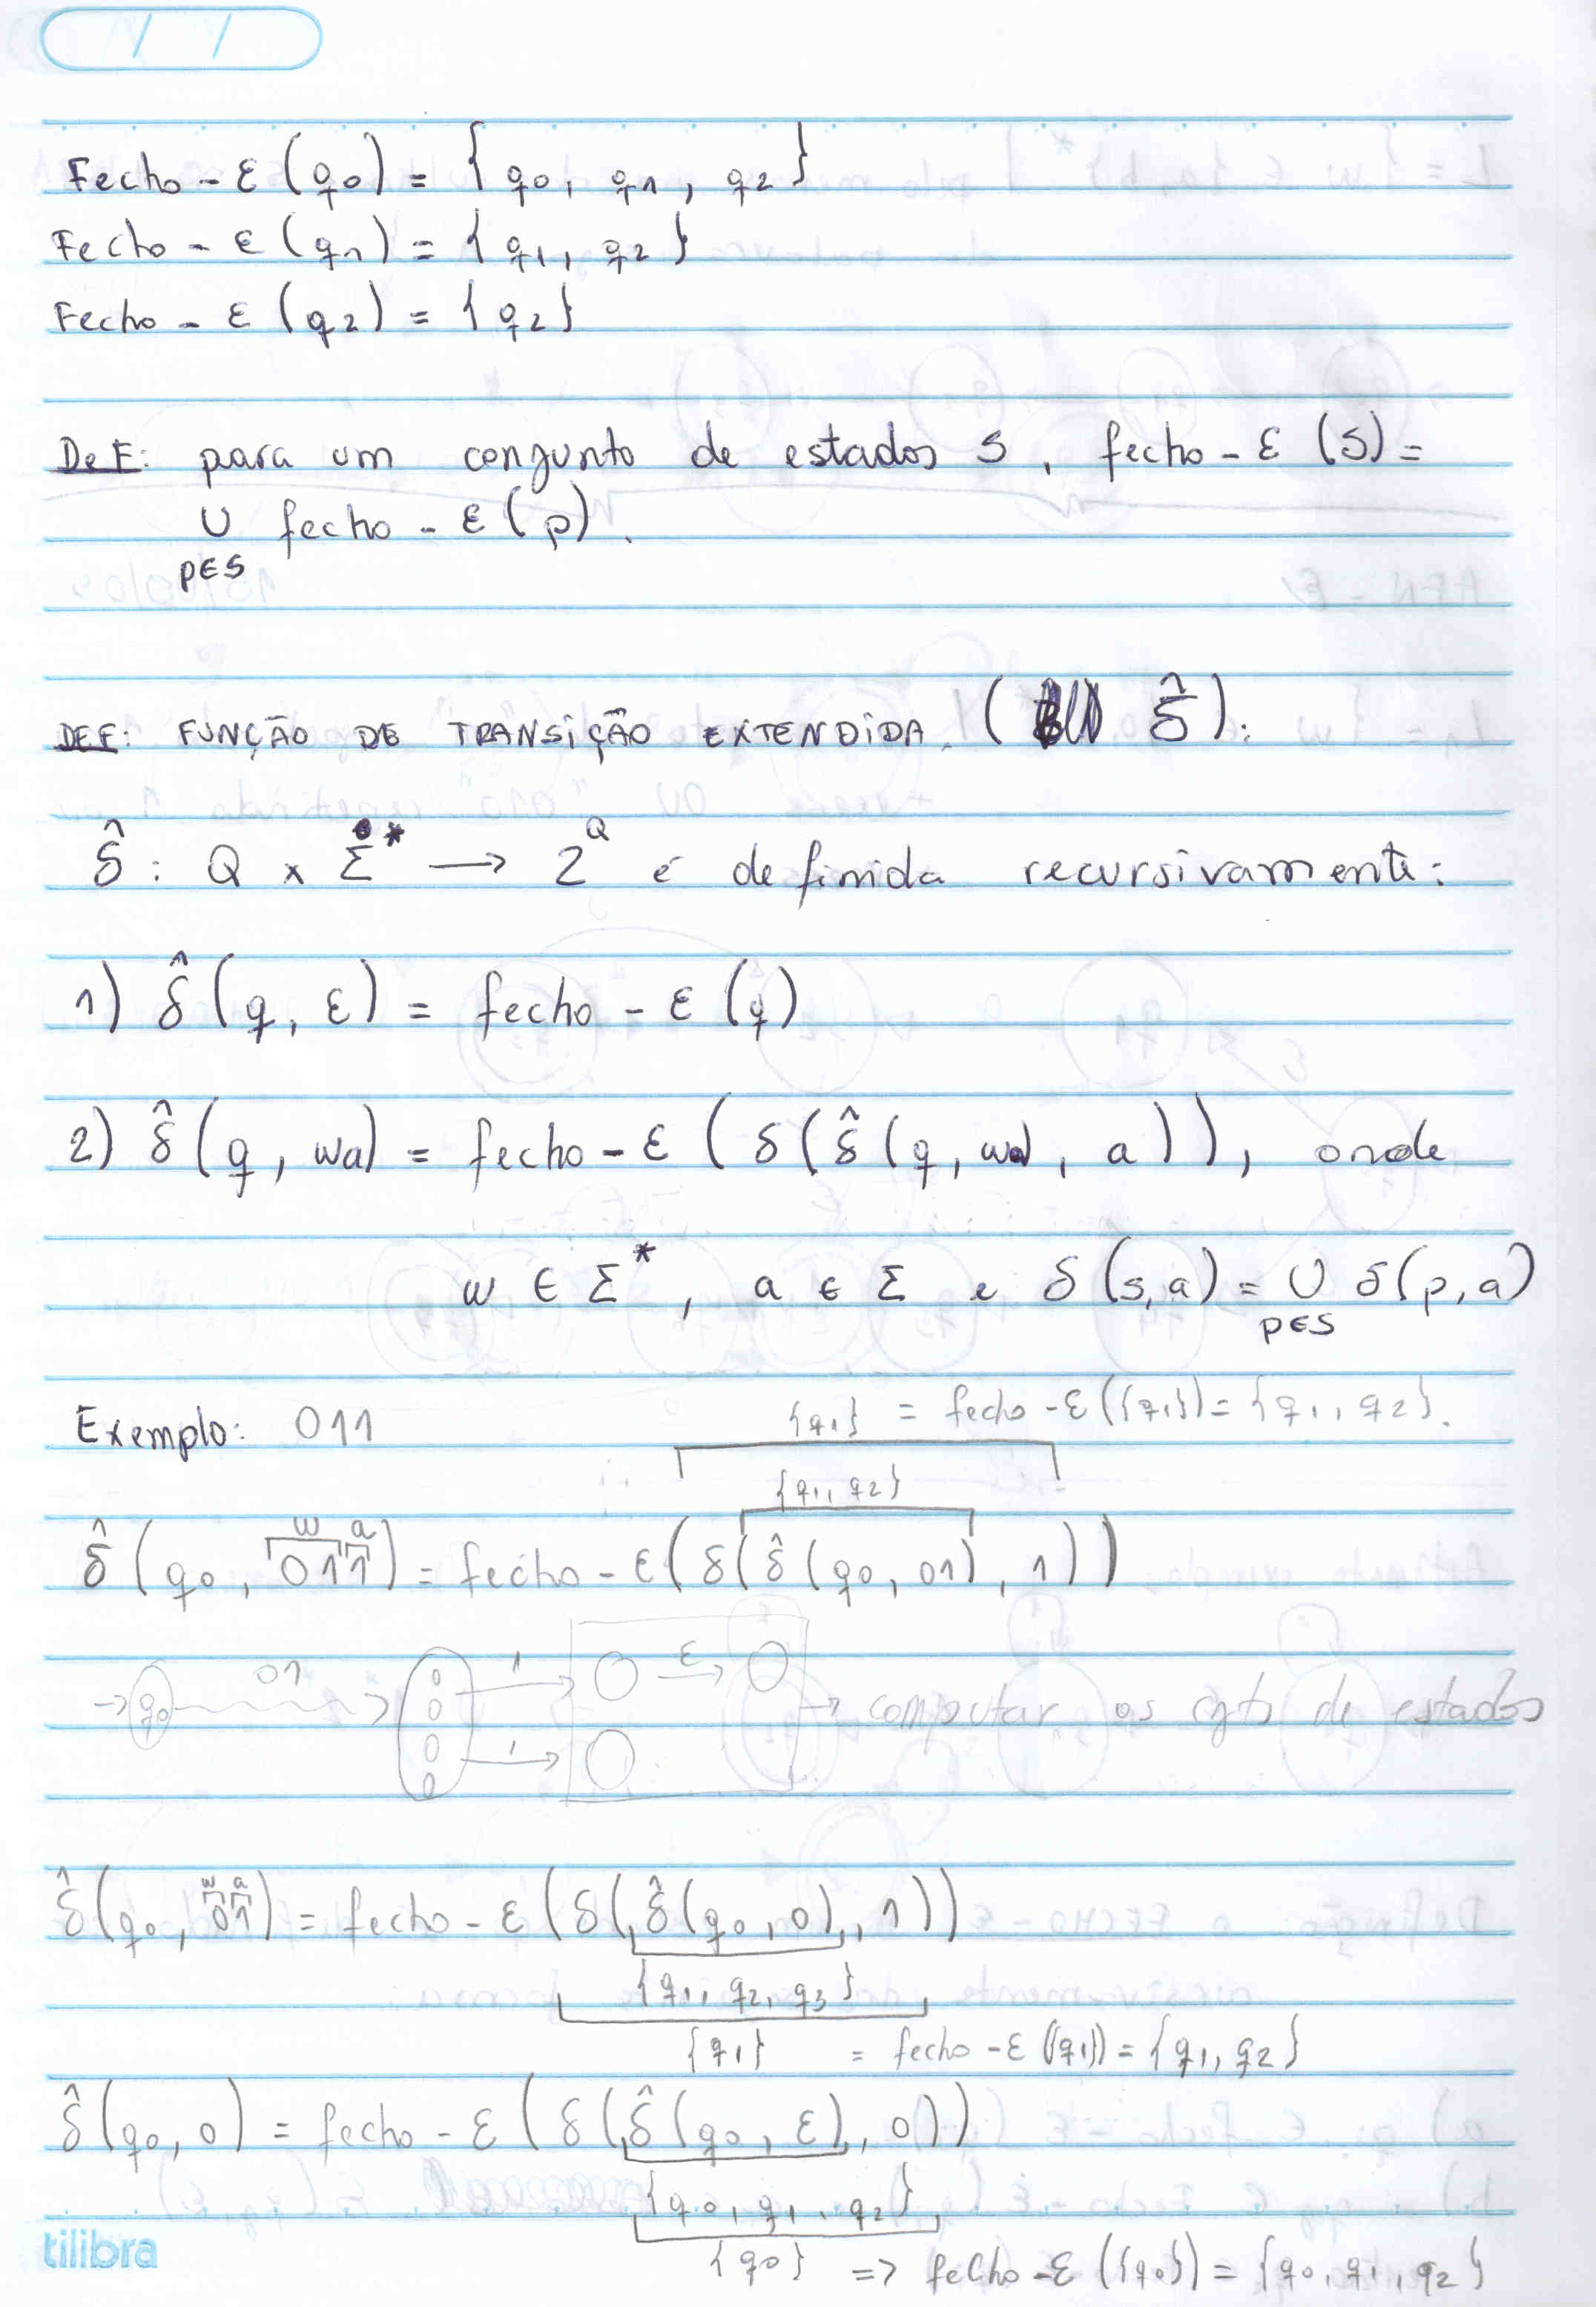 / /
Fecho - ε (q0) = { q0, q1, q2 }
Fecho - ε (q1) = { q1, q2 }
Fecho - ε (q2) = { q2 }
DEF: para um conjunto de estados S, fecho - ε (S) =
∪ fecho - ε (p).
p∈S
DEF: FUNÇÃO DE TRANSIÇÃO EXTENDIDA. ( δ̂ ):
δ̂ : Q x Σ* → 2^Q é definida recursivamente:
1) δ̂ (q, ε) = fecho - ε (q)
2) δ̂ (q, wa) = fecho - ε ( δ ( δ̂ (q, w), a ) ), onde
w ∈ Σ*, a ∈ Σ e δ (s,a) = ∪ δ(p, a)
p∈S
{q1} = fecho - ε ({q1}) = {q1, q2}.
Exemplo: 011
{q1, q2}
w a
δ̂ (q0, 011) = fecho - ε ( δ ( δ̂ (q0, 01), 1 ) )
→ q0 01 1 ε 1 → computar os cjts de estados
w a
δ̂ (q0, 01) = fecho - ε ( δ ( δ̂ (q0, 0), 1 ) )
{q1, q2, q3}
{q1} = fecho - ε ({q1}) = {q1, q2}
δ̂ (q0, 0) = fecho - ε ( δ ( δ̂ (q0, ε), 0 ) )
{q0, q1, q2}
{q0} => fecho - ε ({q0}) = {q0, q1, q2}
tilibra